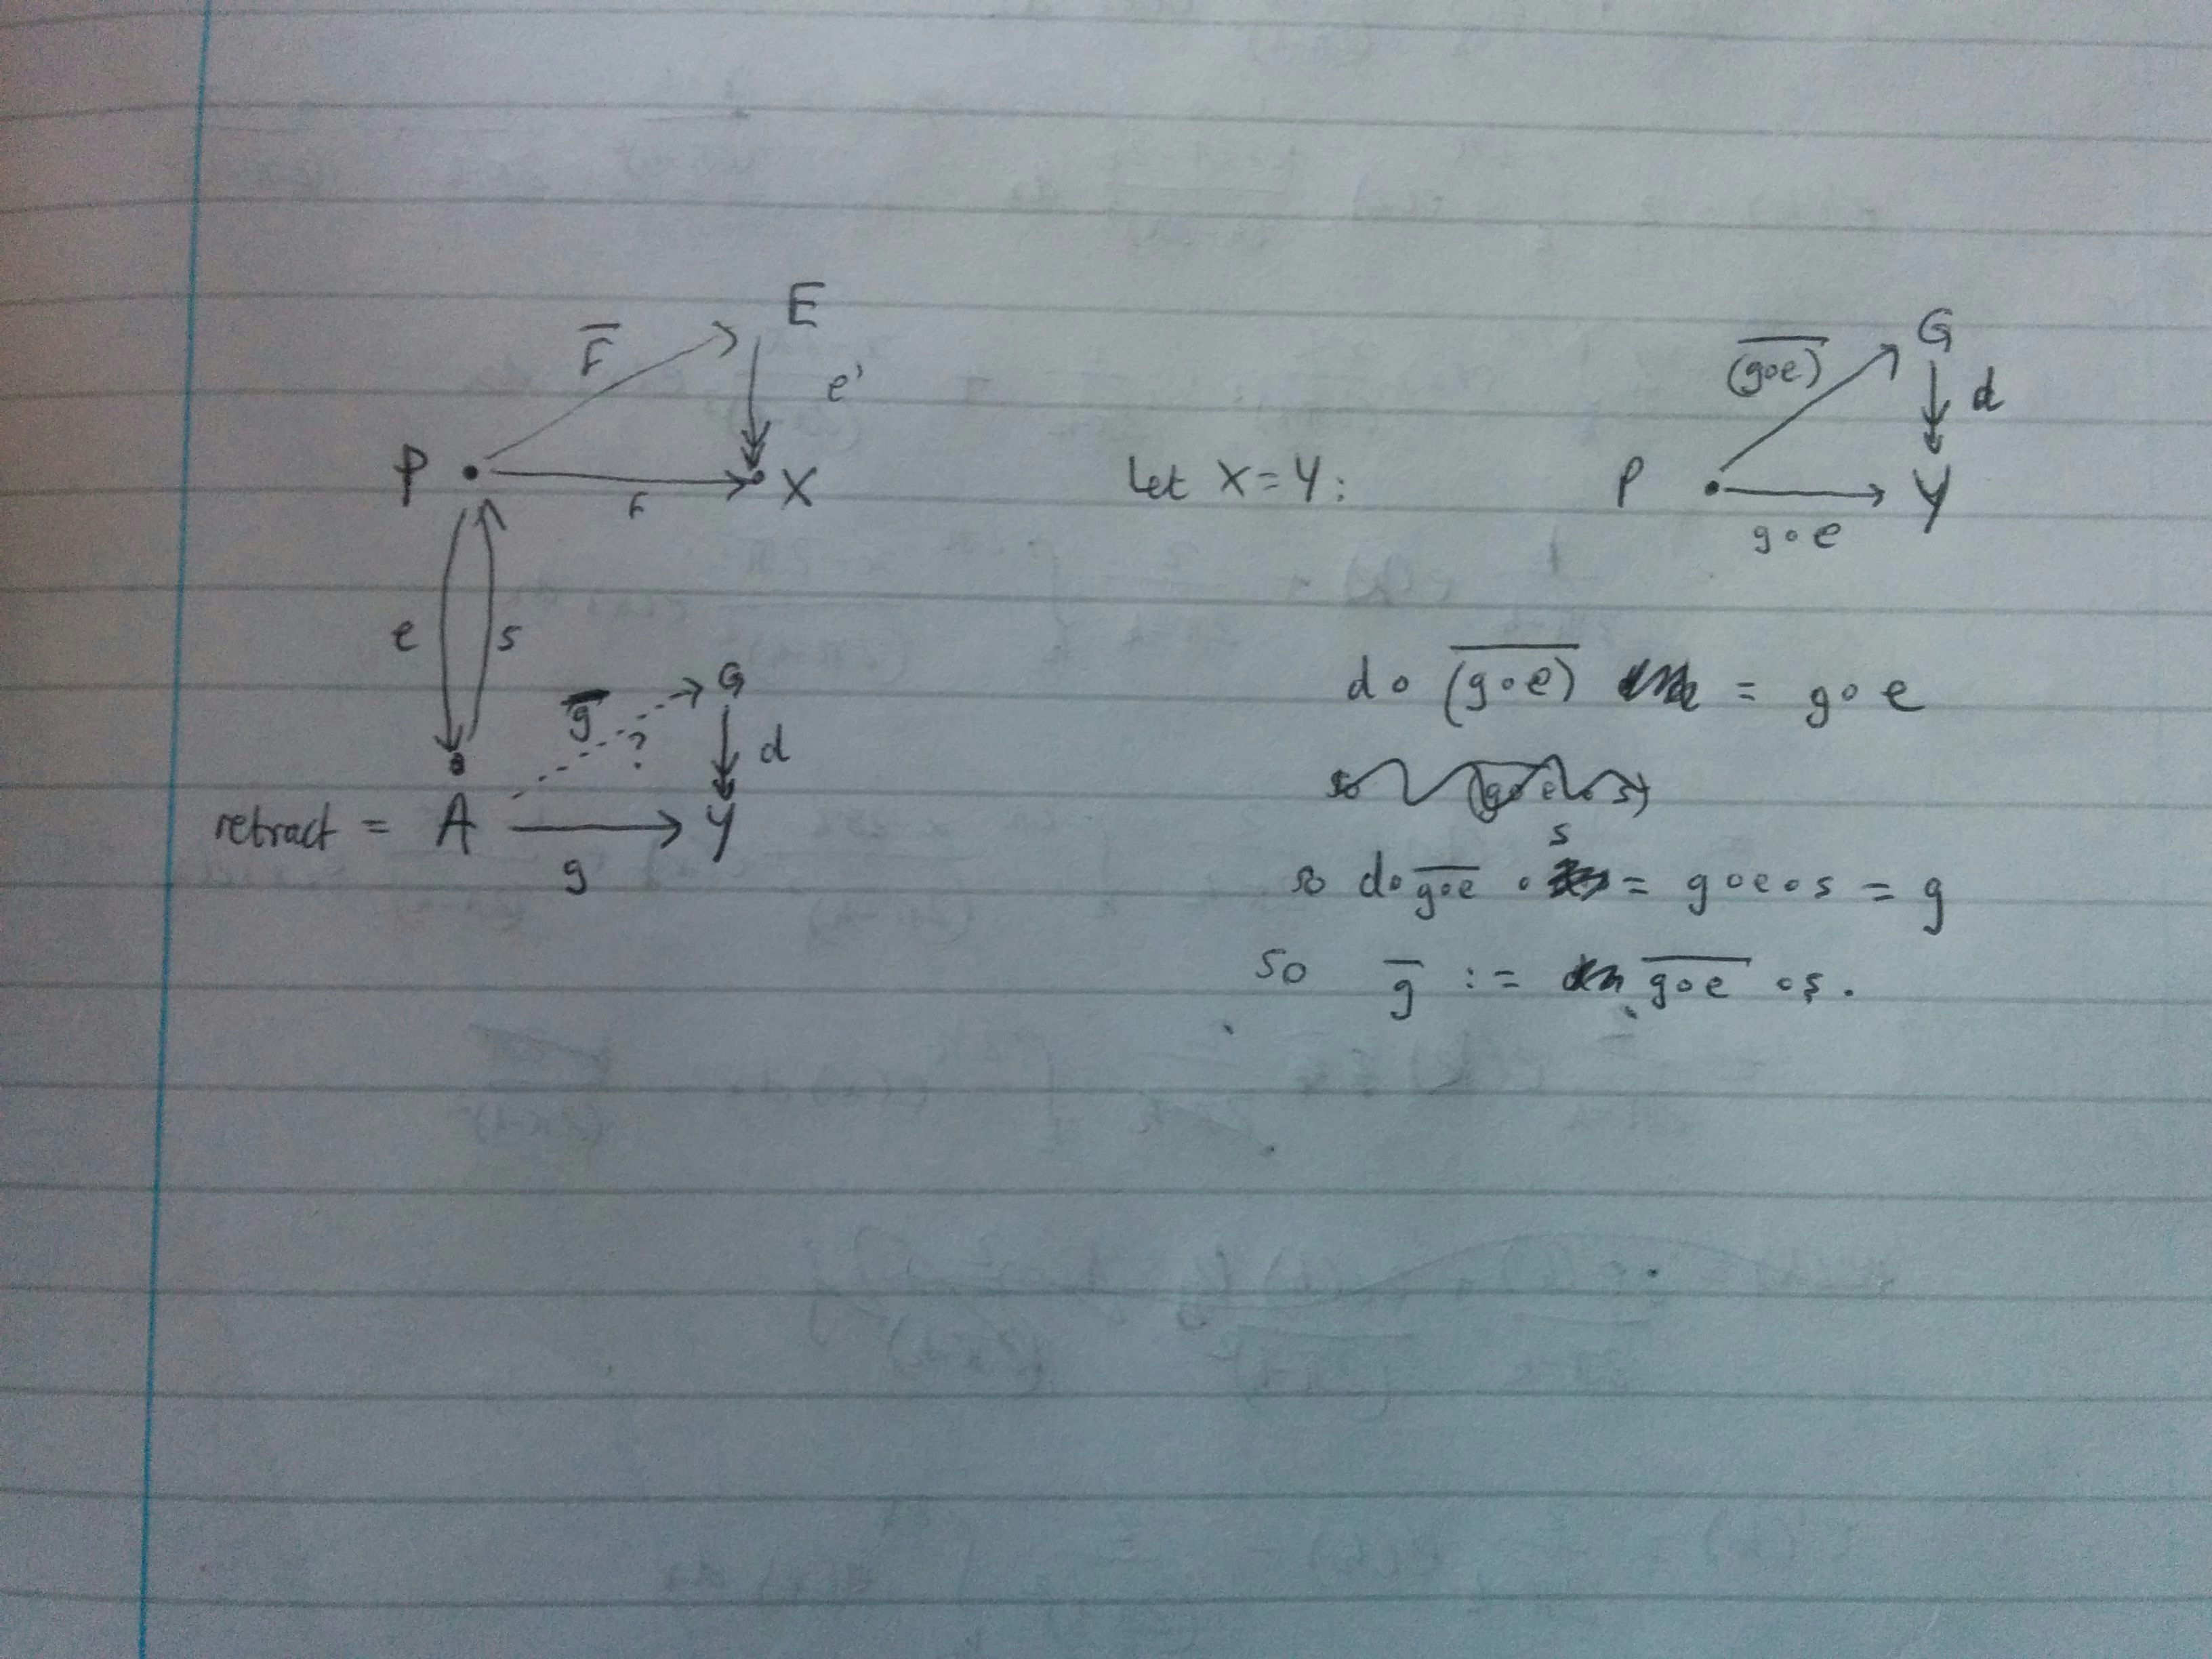 E
F̅
e'
P
f
X
e
s
g̅
?
G
d
retract = A
g
Y
Let X = Y :
G
(g∘e)̅
d
P
Y
g∘e
d ∘ (g∘e)̅ = g∘e
s
so d∘ g∘e̅ ∘ = g∘e∘s = g
so g̅ := g∘e̅ ∘s.